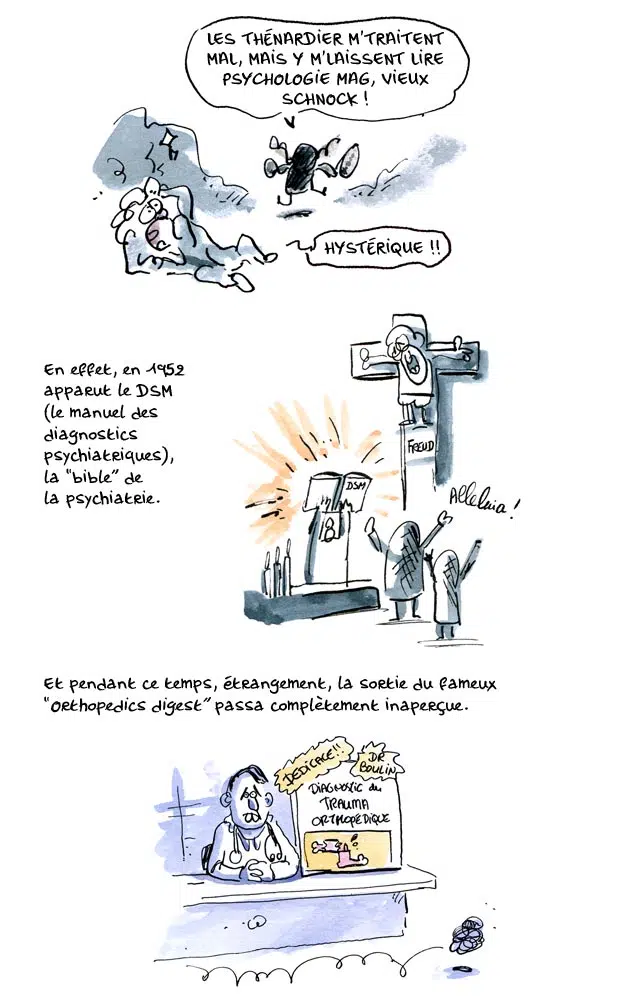 LES THÉNARDIER M'TRAITENT
MAL, MAIS Y M'LAISSENT LIRE
PSYCHOLOGIE MAG, VIEUX
SCHNOCK !
HYSTÉRIQUE !!
En effet, en 1952
apparut le DSM
(le manuel des
diagnostics
psychiatriques),
la "bible" de
la psychiatrie.
FREUD
DSM
Alleluia !
Et pendant ce temps, étrangement, la sortie du fameux
"Orthopedics digest" passa complètement inaperçue.
DEDICACE!!
DR
BOULIN
DIAGNOSTIC du
TRAUMA
ORTHOPÉDIQUE